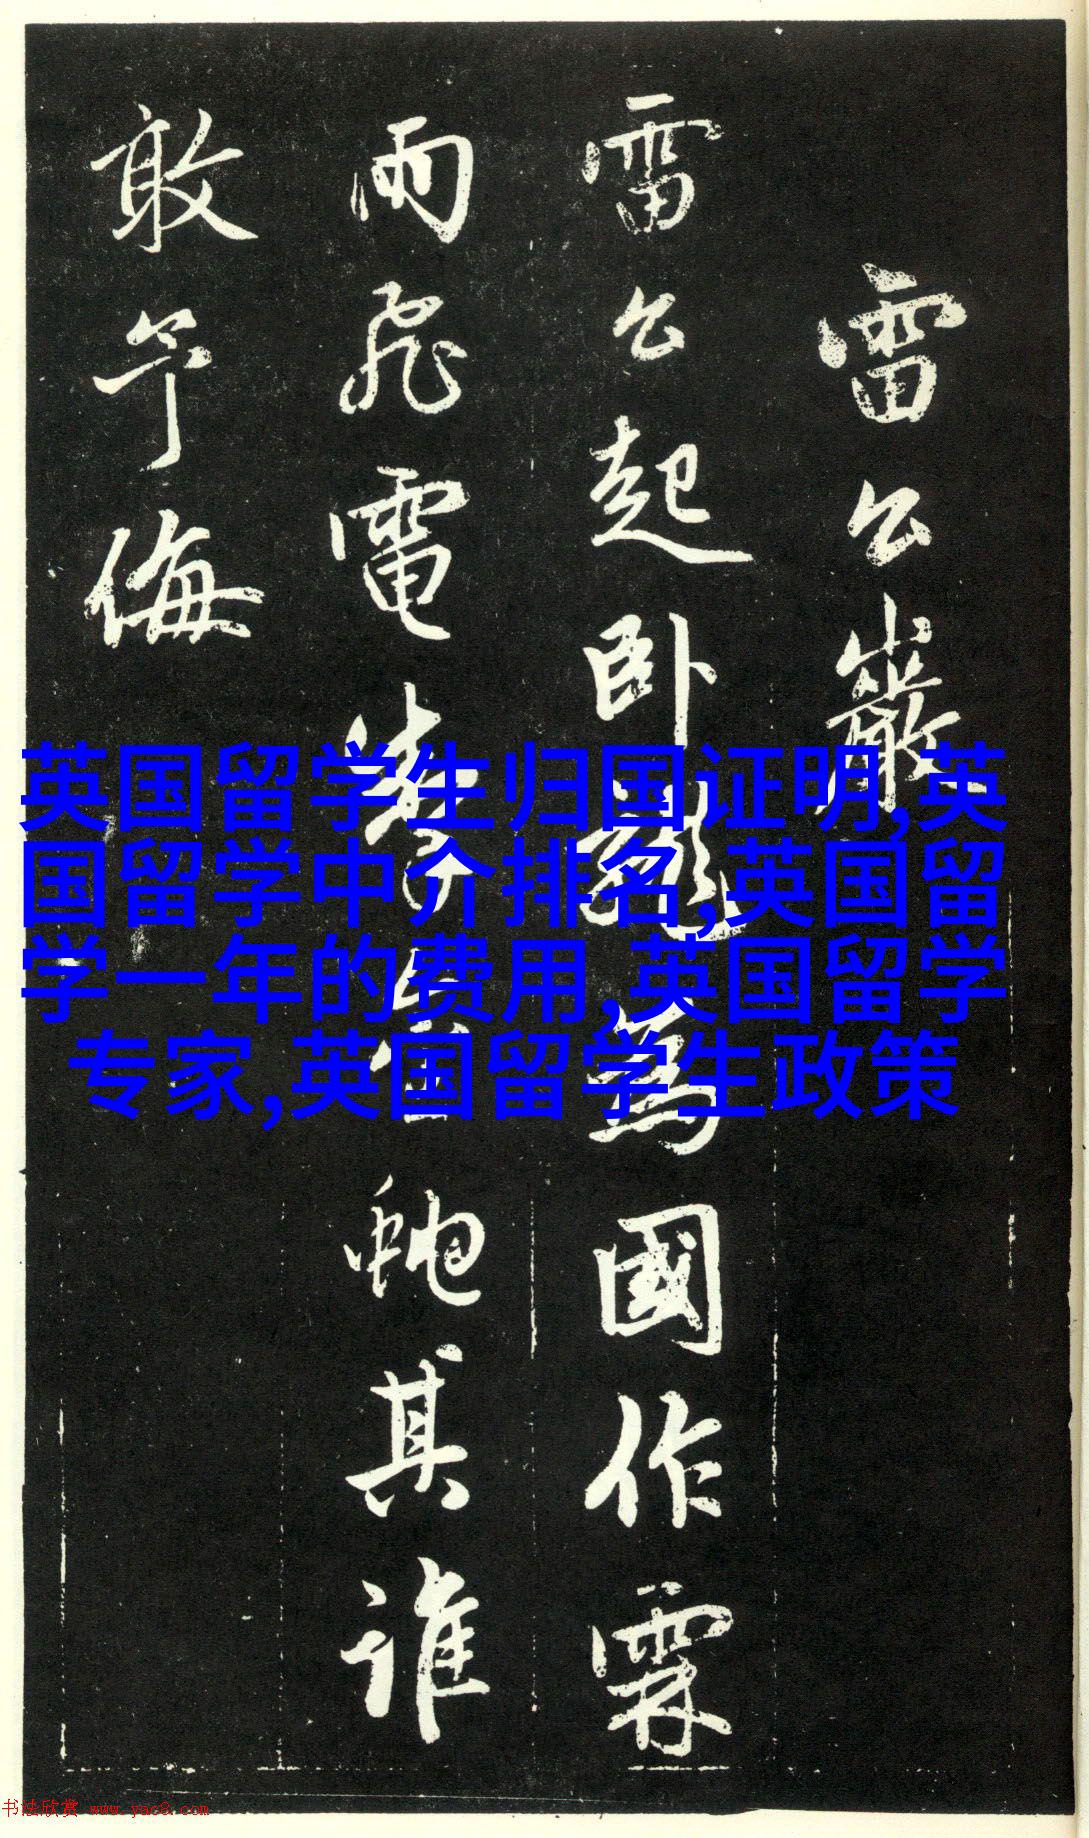 雷公巖
雷公起卧龍為國作霖
雨飛電掣金虵其誰
敢予侮
英国留学生归国证明,英
国留学中介排名,英国留
学一年的费用,英国留学
专家,英国留学生政策
书法欣赏 www.yac8.com